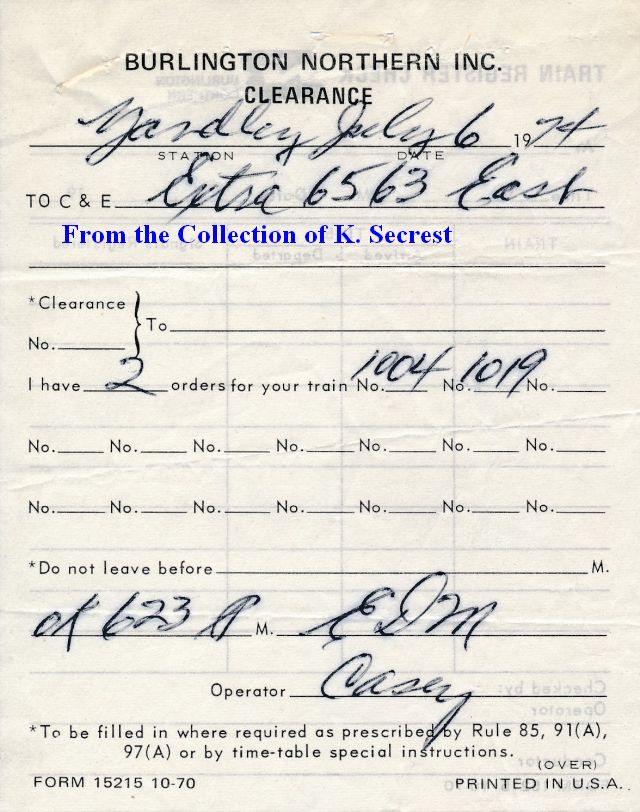 BURLINGTON NORTHERN INC.
CLEARANCE
Yardley July 6 1974
STATION DATE
TO C & E Extra 6563 East
From the Collection of K. Secrest
*Clearance
No. } To
I have 2 orders for your train No. 1004 No. 1019 No.
No. No. No. No. No. No. No.
No. No. No. No. No. No. No.
*Do not leave before M.
ok 623 P M. EDM
Operator Casey
*To be filled in where required as prescribed by Rule 85, 91(A),
97(A) or by time-table special instructions.
(OVER)
FORM 15215 10-70 PRINTED IN U.S.A.